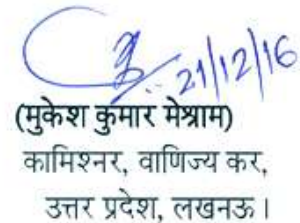 21/12/16
(मुकेश कुमार मेश्राम)
कामिश्नर, वाणिज्य कर,
उत्तर प्रदेश, लखनऊ।